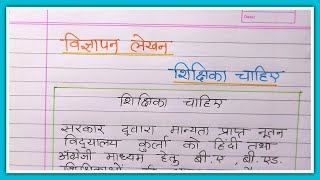 विज्ञापन लेखन
शिक्षिका चाहिए
शिक्षिका चाहिए
सरकार द्वारा मान्यता प्राप्त नूतन
विद्यालय कुर्ला को हिंदी तथा
अंग्रेजी माध्यम हेतु बी.ए, बी.एड.